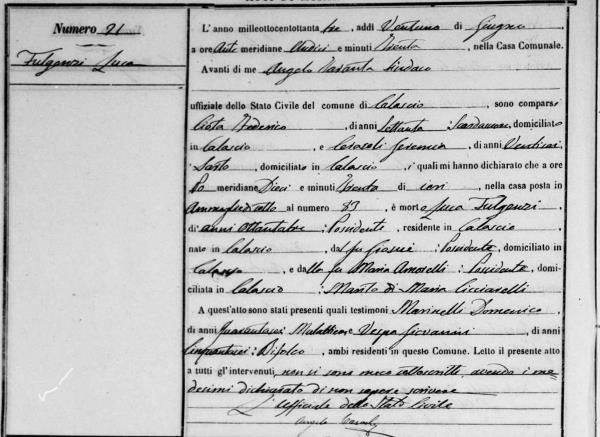 Numero 21
Fulgenzi Luca
L'anno milleottocentottanta tre, addì Ventuno di Giugno
a ore Anti meridiane Undici e minuti Trenta, nella Casa Comunale.
Avanti di me Angelo Taranta Sindaco
uffiziale dello Stato Civile del comune di Calascio, sono comparsi
Ciota Federico, di anni Settanta: domiciliato
in Calascio e Geremia, di anni Ventisei
Sarto, domiciliato in Calascio, i quali mi hanno dichiarato che a ore
Po meridiane Dieci e minuti Trenta di ieri, nella casa posta in
al numero 83, è morto Luca Fulgenzi
di anni Ottantatre: Possidente, residente in Calascio
nato in Calascio, dal fu Giosuè: Possidente, domiciliato in
Calascio, e dalla fu Maria Amorelli: Possidente, domi-
ciliata in Calascio: Marito di Maria Cicciarelli
A quest'atto sono stati presenti quali testimoni Marinelli Domenico,
di anni Quarantasei: Mulattiere e Vespa Giovanni, di anni
Cinquantasei: Bifolco, ambi residenti in questo Comune. Letto il presente atto
a tutti gl'intervenuti, non si sono meco sottoscritti, avendo i me-
desimi dichiarato di non sapere scrivere
L'Uffiziale dello Stato Civile
Angelo Taranta